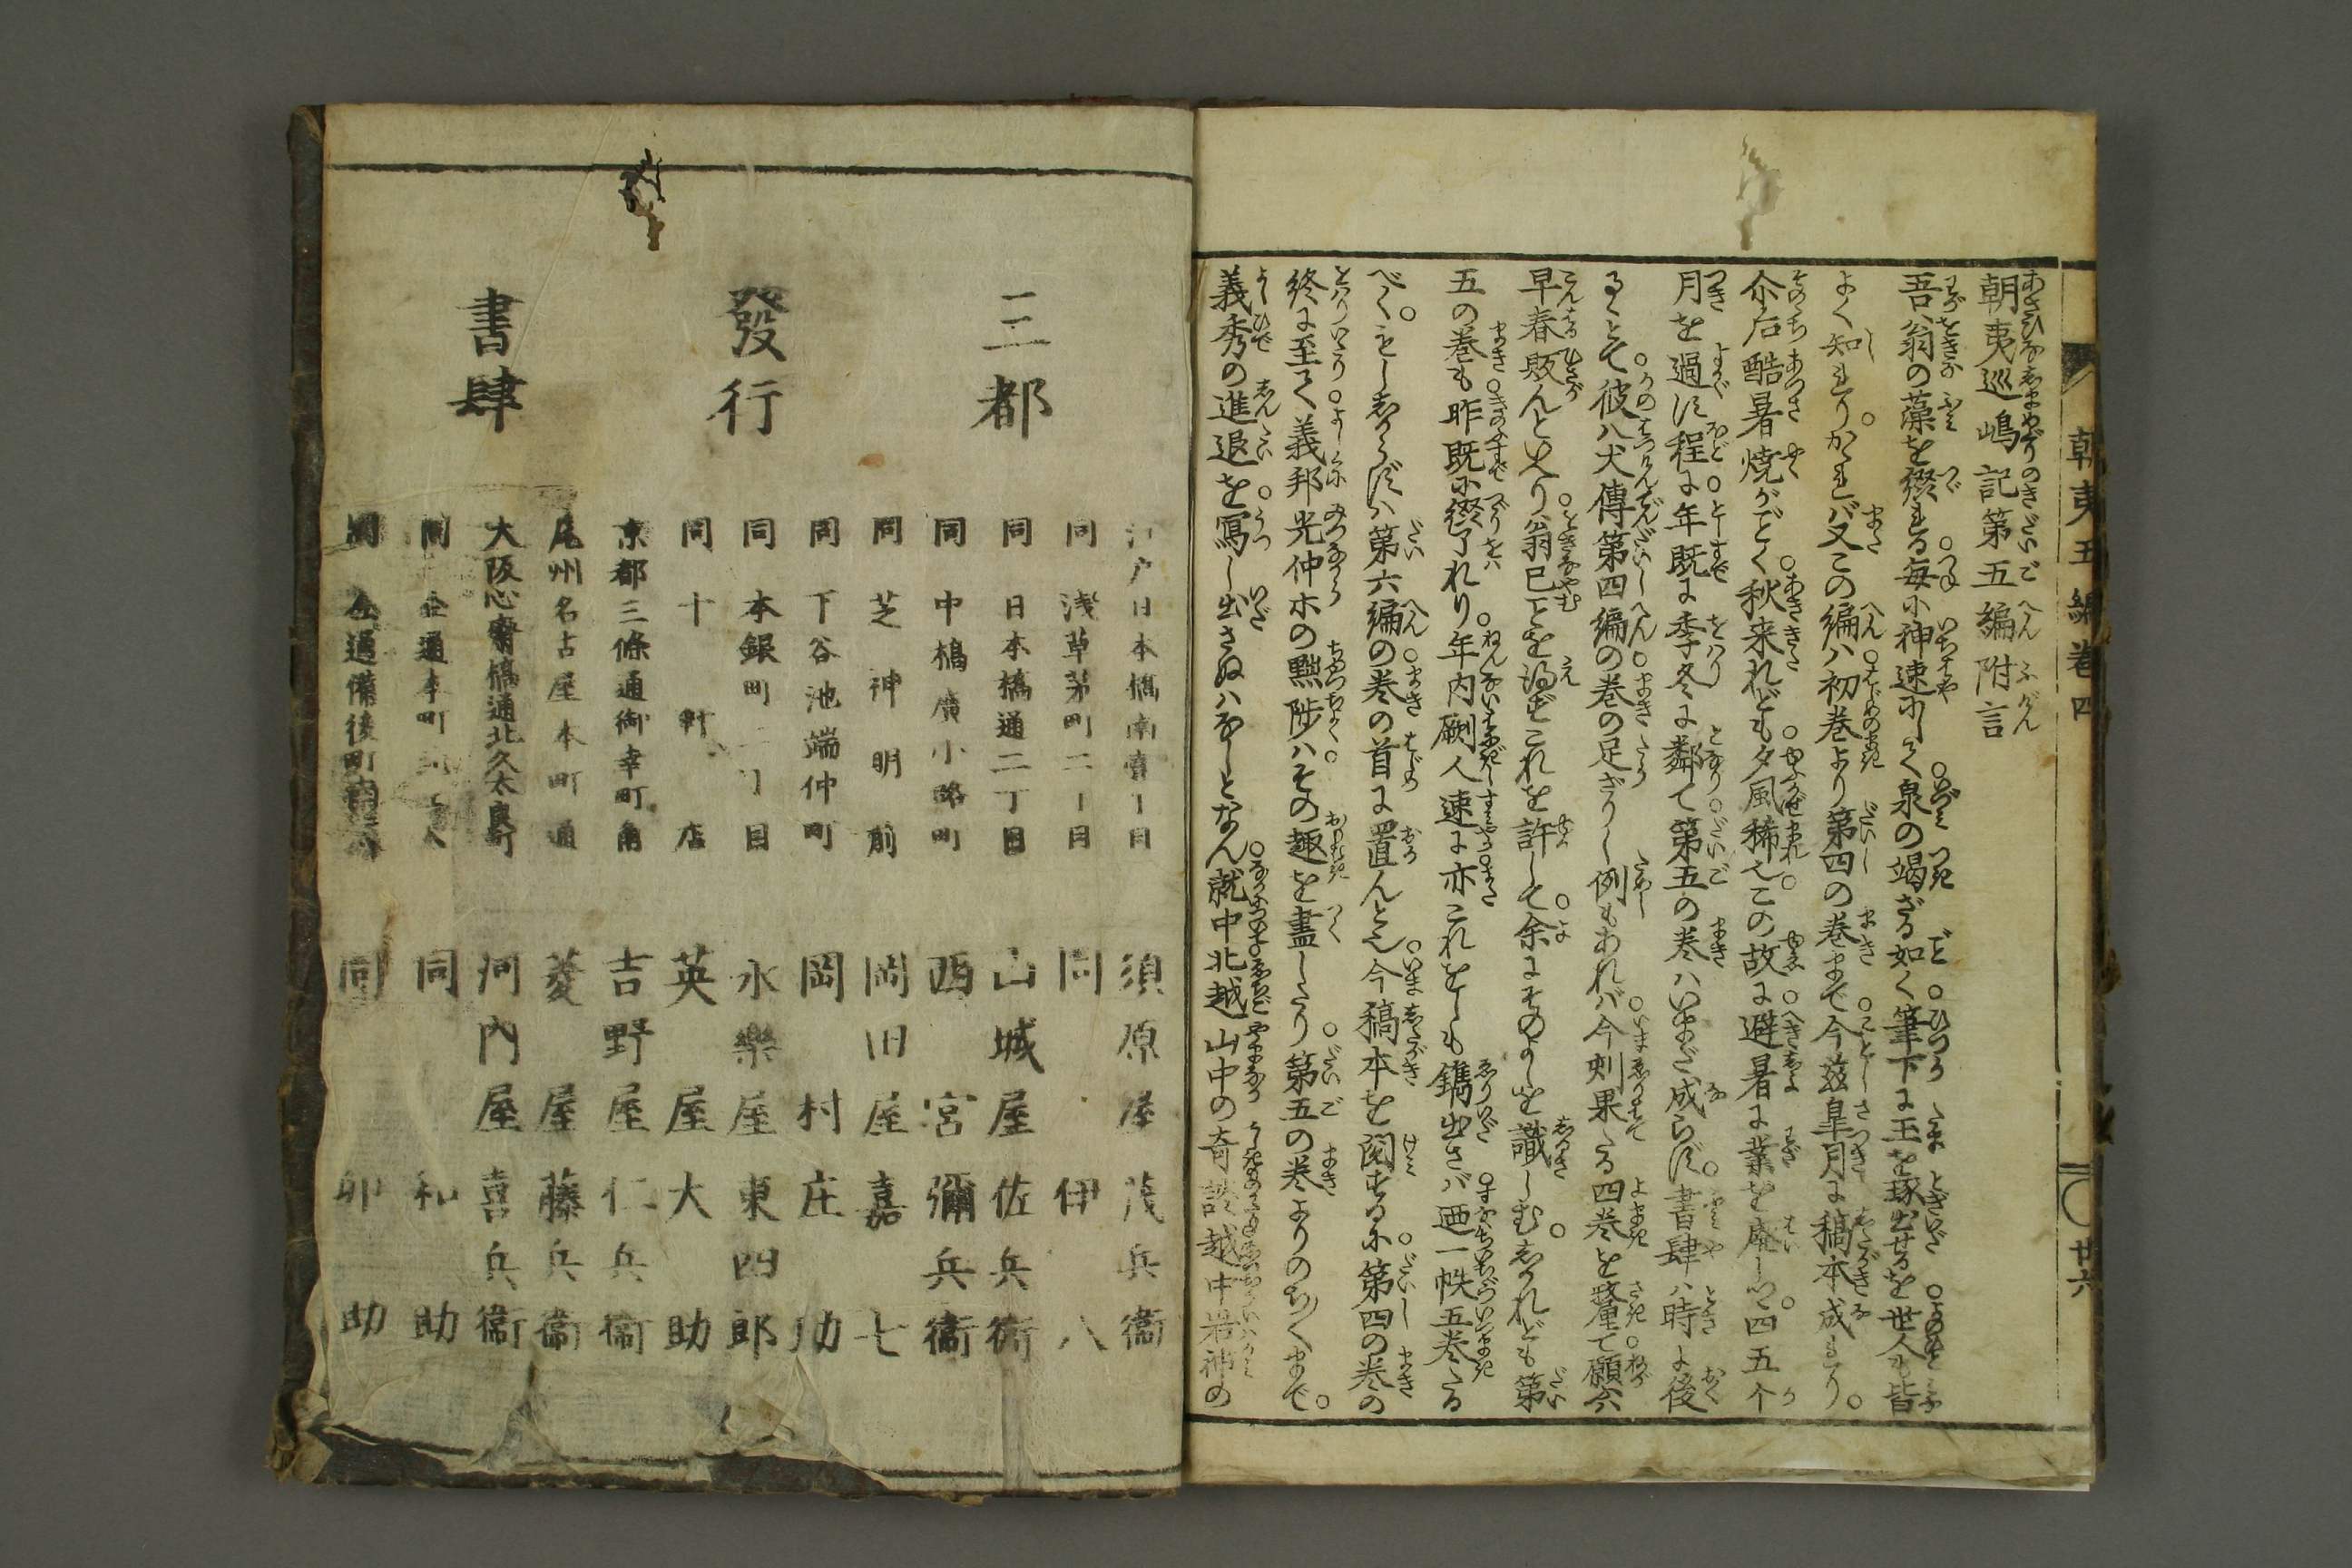 朝夷五編巻四
廿六
朝夷巡嶋記第五編附言
吾翁の藻を綴る毎に神速にして泉の竭ざる如く筆下に玉を琢出せるを世人も皆
よく知れりかゝれば又この編ハ初巻より第四の巻まで今茲皐月に稿本成れり
尒后酷暑焼がごとく秋来れども夕風稀也この故に避暑に業を廃しつ四五个
月を過す程に年既に季冬に鄰て第五の巻ハいまだ成らず書肆ハ時に後
るゝとて彼八犬傳第四編の巻の足ざりし例もあれバ今刻果たる四巻を釐て願ハ
早春販んといへり翁已ことを得ずこれを許して余にそのよしを識しむしかれども第
五の巻も昨既に綴了れり年内劂人速に亦これをしも鐫出さバ迺一帙五巻たる
べくもししからずハ第六編の巻の首に置んとぞ今稿本を閲するに第四の巻の
終に至て義邦光仲ホの黜陟ハその趣を盡したり第五の巻よりのち〳〵まで
義秀の進退を寫し出さぬハなしとなん就中北越山中の奇談越中岩神の
三都
發行
書肆
江戸日本橋南壹丁目 須原屋茂兵衞
同 浅草茅町二丁目 同 伊八
同 日本橋通二丁目 山城屋佐兵衛
同 中橋廣小路町 西宮彌兵衞
同 芝神明前 岡田屋嘉七
同 下谷池端仲町 岡村庄助
同 本銀町二丁目 永樂屋東四郎
同 十軒店 英屋大助
京都三條通御幸町角 吉野屋仁兵衞
尾州名古屋本町通 菱屋藤兵衞
大阪心齋橋通北久太良町 河内屋喜兵衞
同 仝通本町 同 和助
同 仝通備後町 同 卯助